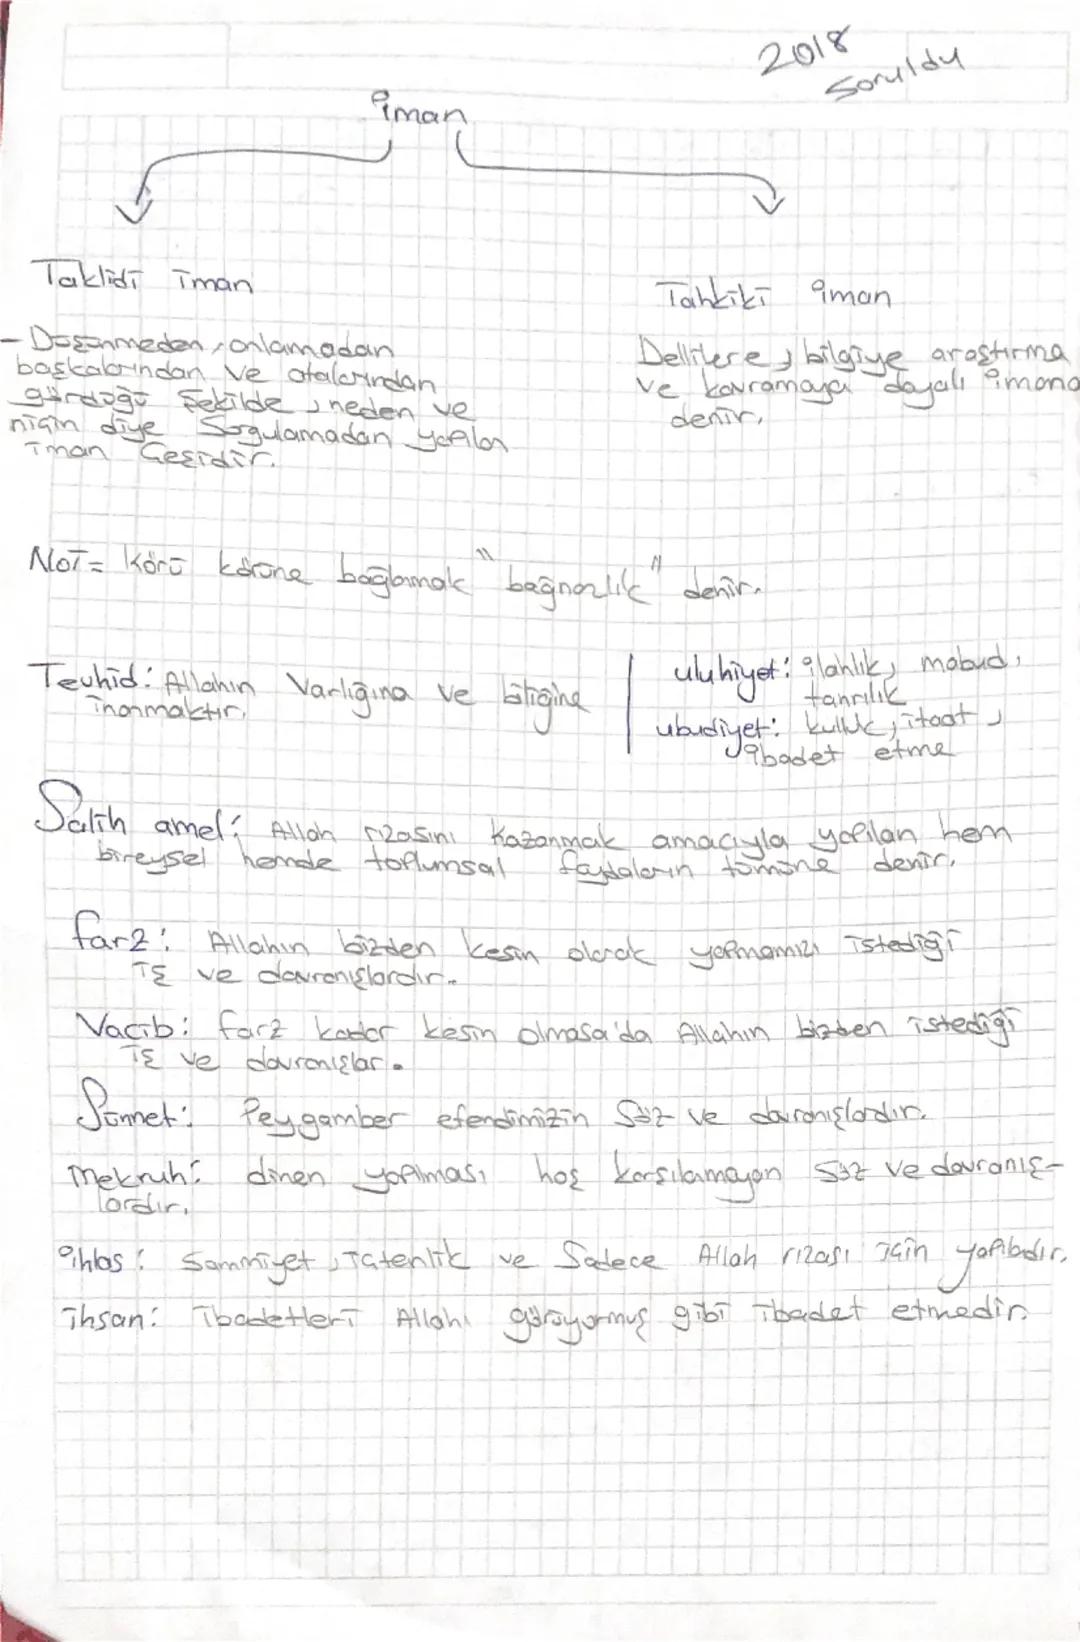 2018
soruldu
iman
Taklidi iman
- Düşünmeden, anlamadan
başkalarından ve atalarından
gördüğü şekilde, neden ve
niçin diye Sorgulamadan yapılan
iman Çeşidir.
Tahkiki iman
Dellilere, bilgiye araştırma
ve kavramaya dayalı imana
denir.
NOT= Körü körüne bağlamak "bağnazlık" denir.
Tevhid: Allahın Varlığına ve birliğine
inanmaktır.
uluhiyet: ilahlık, mabud,
tanrılık
ubudiyet: kulluk, itaat,
ibadet etme
Salih amel: Allah rızasını kazanmak amacıyla yapılan hem
bireysel hemde toplumsal faydaların tümüne denir.
farz: Allahın bizden kesin olarak yapmamızı istediği
iş ve davranışlardır.
Vacib: farz kadar kesin olmasa'da Allahın bizden istediği
iş ve davranışlar.
Sünnet: Peygamber efendimizin Söz ve davranışlardır.
Mekruh: dinen yapılması hoş karşılamayan Söz ve davranış-
lardır.
ihlas: Sammiyet, içtenlik ve Sadece Allah rızası için yapıladır.
ihsan: ibadetleri Allahı görüyormuş gibi ibadet etmedir.